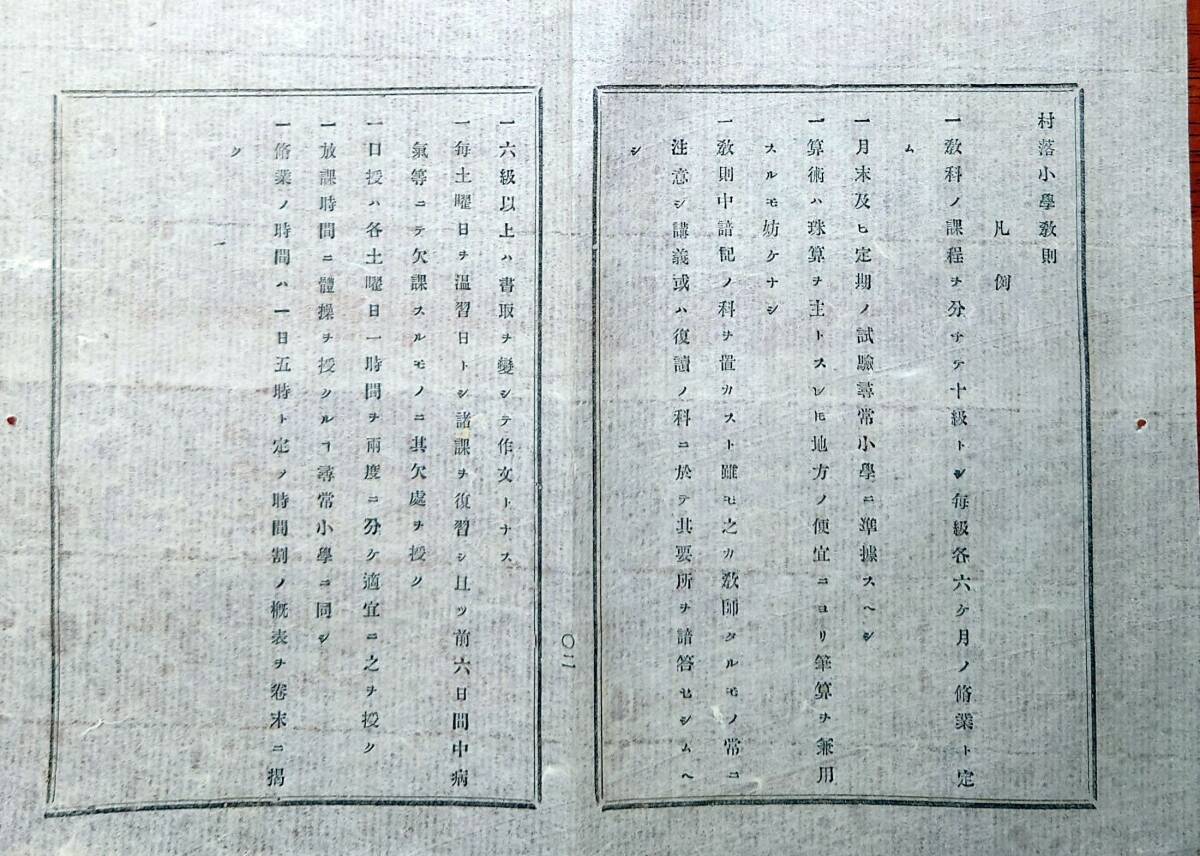 村落小學教則
凡例
一教科ノ課程ヲ分チテ十級トシ毎級各六ケ月ノ脩業ト定
ム
一月末及ヒ定期ノ試驗尋常小學ニ準據スヘシ
一算術ハ珠算ヲ主トスレ𪜈地方ノ便宜ニヨリ筆算ヲ兼用
スルモ妨ケナシ
一教則中諳記ノ科ヲ置カスト雖モ之カ教師タルモノ常ニ
注意シ講義或ハ復讀ノ科ニ於テ其要所ヲ諳答セシムヘ
シ
〇二
一六級以上ハ書取ヲ變シテ作文トナス
一毎土曜日ヲ温習日トシ諸課ヲ復習シ且ツ前六日間中病
氣等ニテ欠課スルモノニ其欠處ヲ授ク
一口授ハ各土曜日一時間ヲ兩度ニ分ケ適宜ニ之ヲ授ク
一放課時間ニ體操ヲ授クルヿ尋常小學ニ同シ
一脩業ノ時間ハ一日五時ト定メ時間割ノ概表ヲ卷末ニ揭
ク